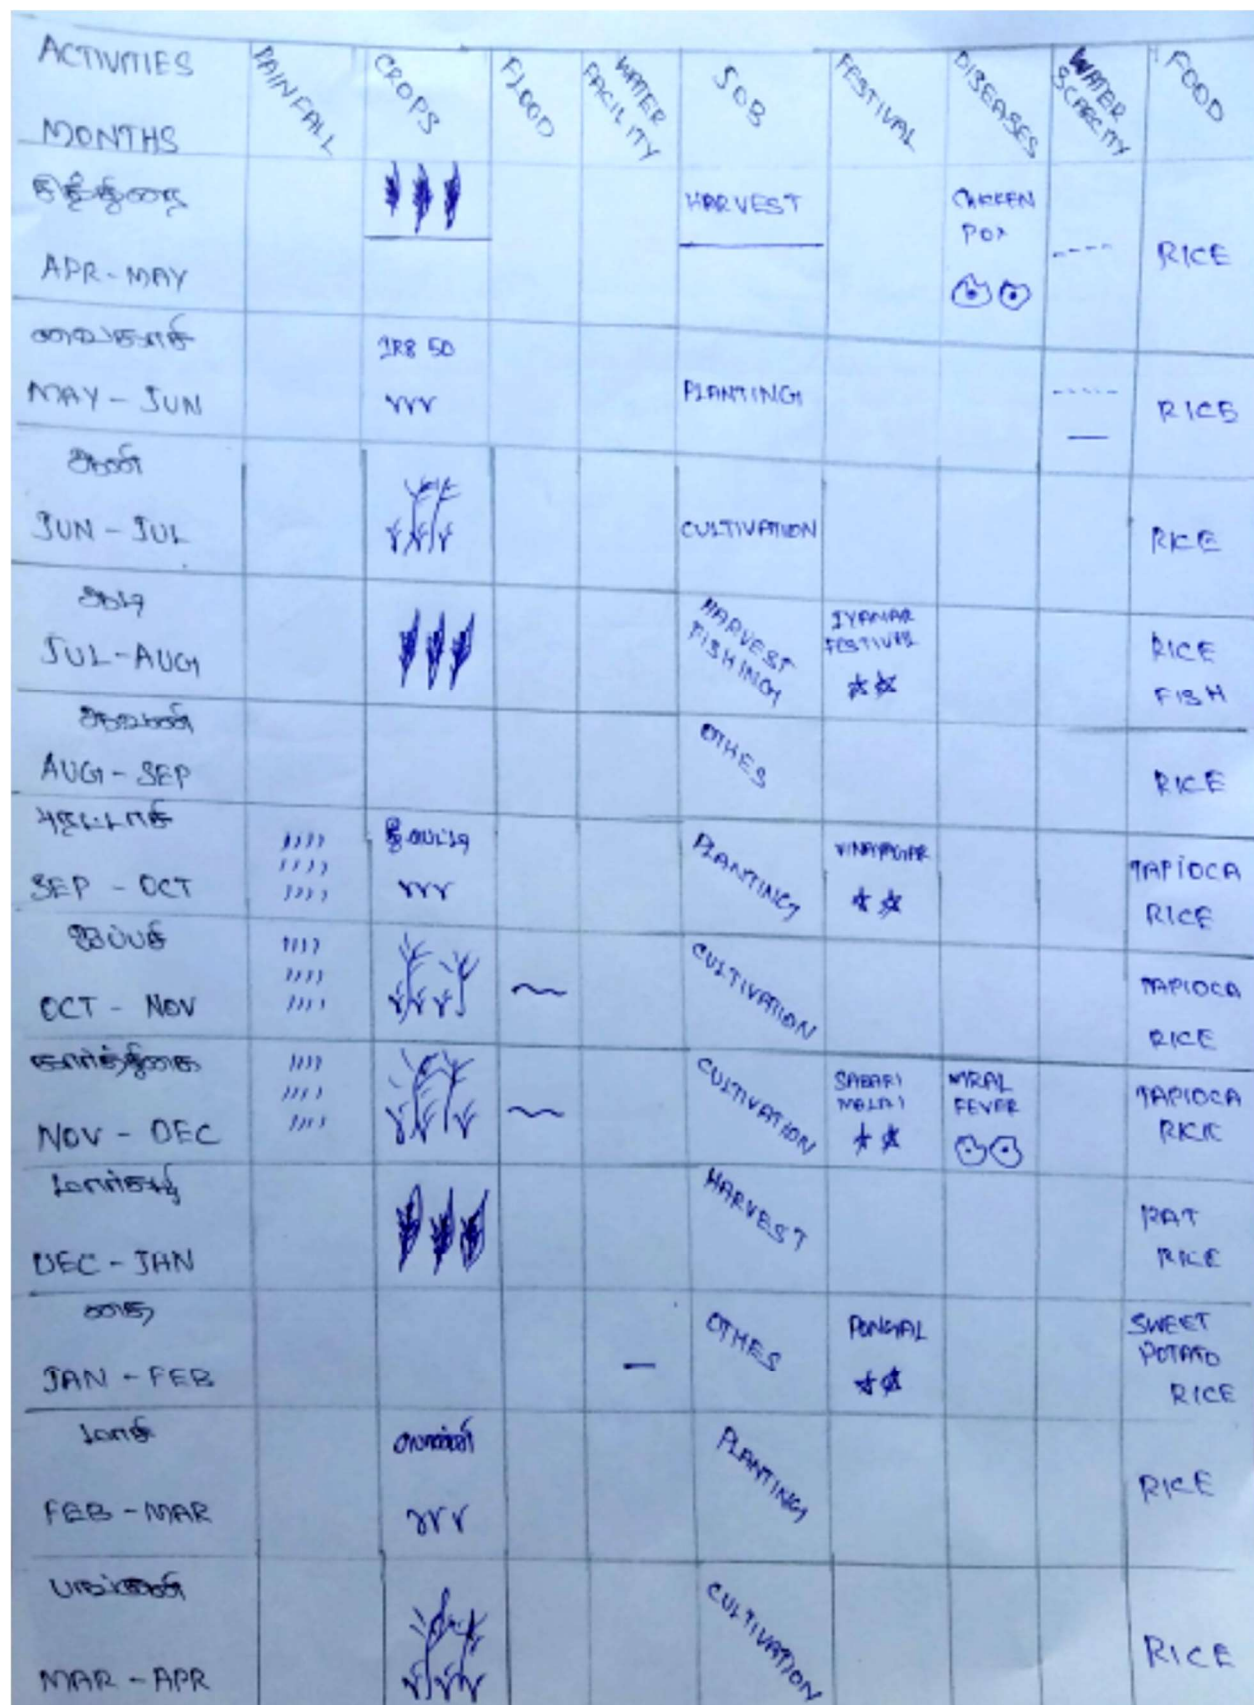 ACTIVITIES
MONTHS
RAINFALL
CROPS
FLOOD
WATER
FACILITY
JOB
FESTIVAL
DISEASES
WATER
SCARCITY
FOOD
சித்திரை
APR-MAY
HARVEST
CHICKEN
POX
RICE
வைகாசி
MAY - JUN
IR8 50
PLANTING
RICE
ஆனி
JUN - JUL
CULTIVATION
RICE
ஆடி
JUL-AUG
HARVEST
FISHING
IYANAR
FESTIVAL
RICE
FISH
ஆவணி
AUG - SEP
OTHES
RICE
புரட்டாசி
SEP - OCT
PLANTING
VINAYAGAR
TAPIOCA
RICE
ஐப்பசி
OCT - NOV
CULTIVATION
TAPIOCA
RICE
கார்த்திகை
NOV - DEC
CULTIVATION
SABARI
MALAI
VIRAL
FEVER
TAPIOCA
RICE
மார்கழி
DEC - JAN
HARVEST
RAT
RICE
தை
JAN - FEB
OTHES
PONGAL
SWEET
POTATO
RICE
மாசி
FEB - MAR
PLANTING
RICE
பங்குனி
MAR - APR
CULTIVATION
RICE